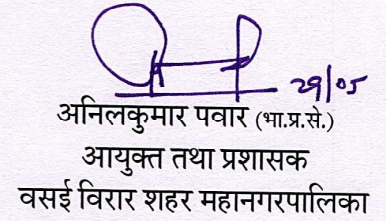 29/05
अनिलकुमार पवार (भा.प्र.से.)
आयुक्त तथा प्रशासक
वसई विरार शहर महानगरपालिका